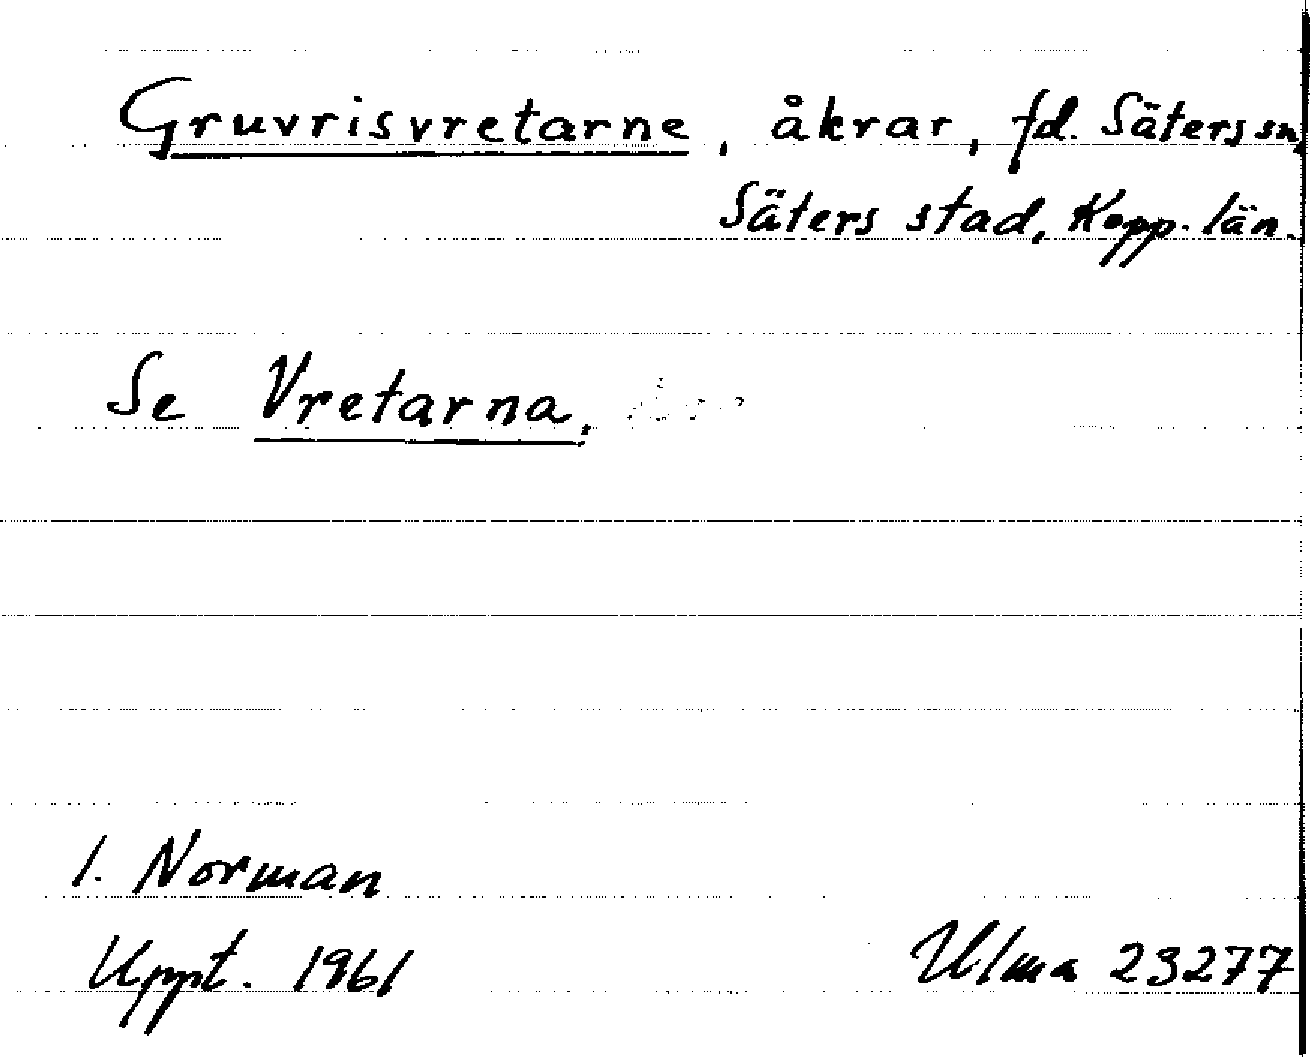 Gruvrisvretarne, åkrar, fd. Säters sn,
Säters stad, Kopp. län.
Se Vretarna.
I. Norman
Uppt. 1961 Ulma 23277